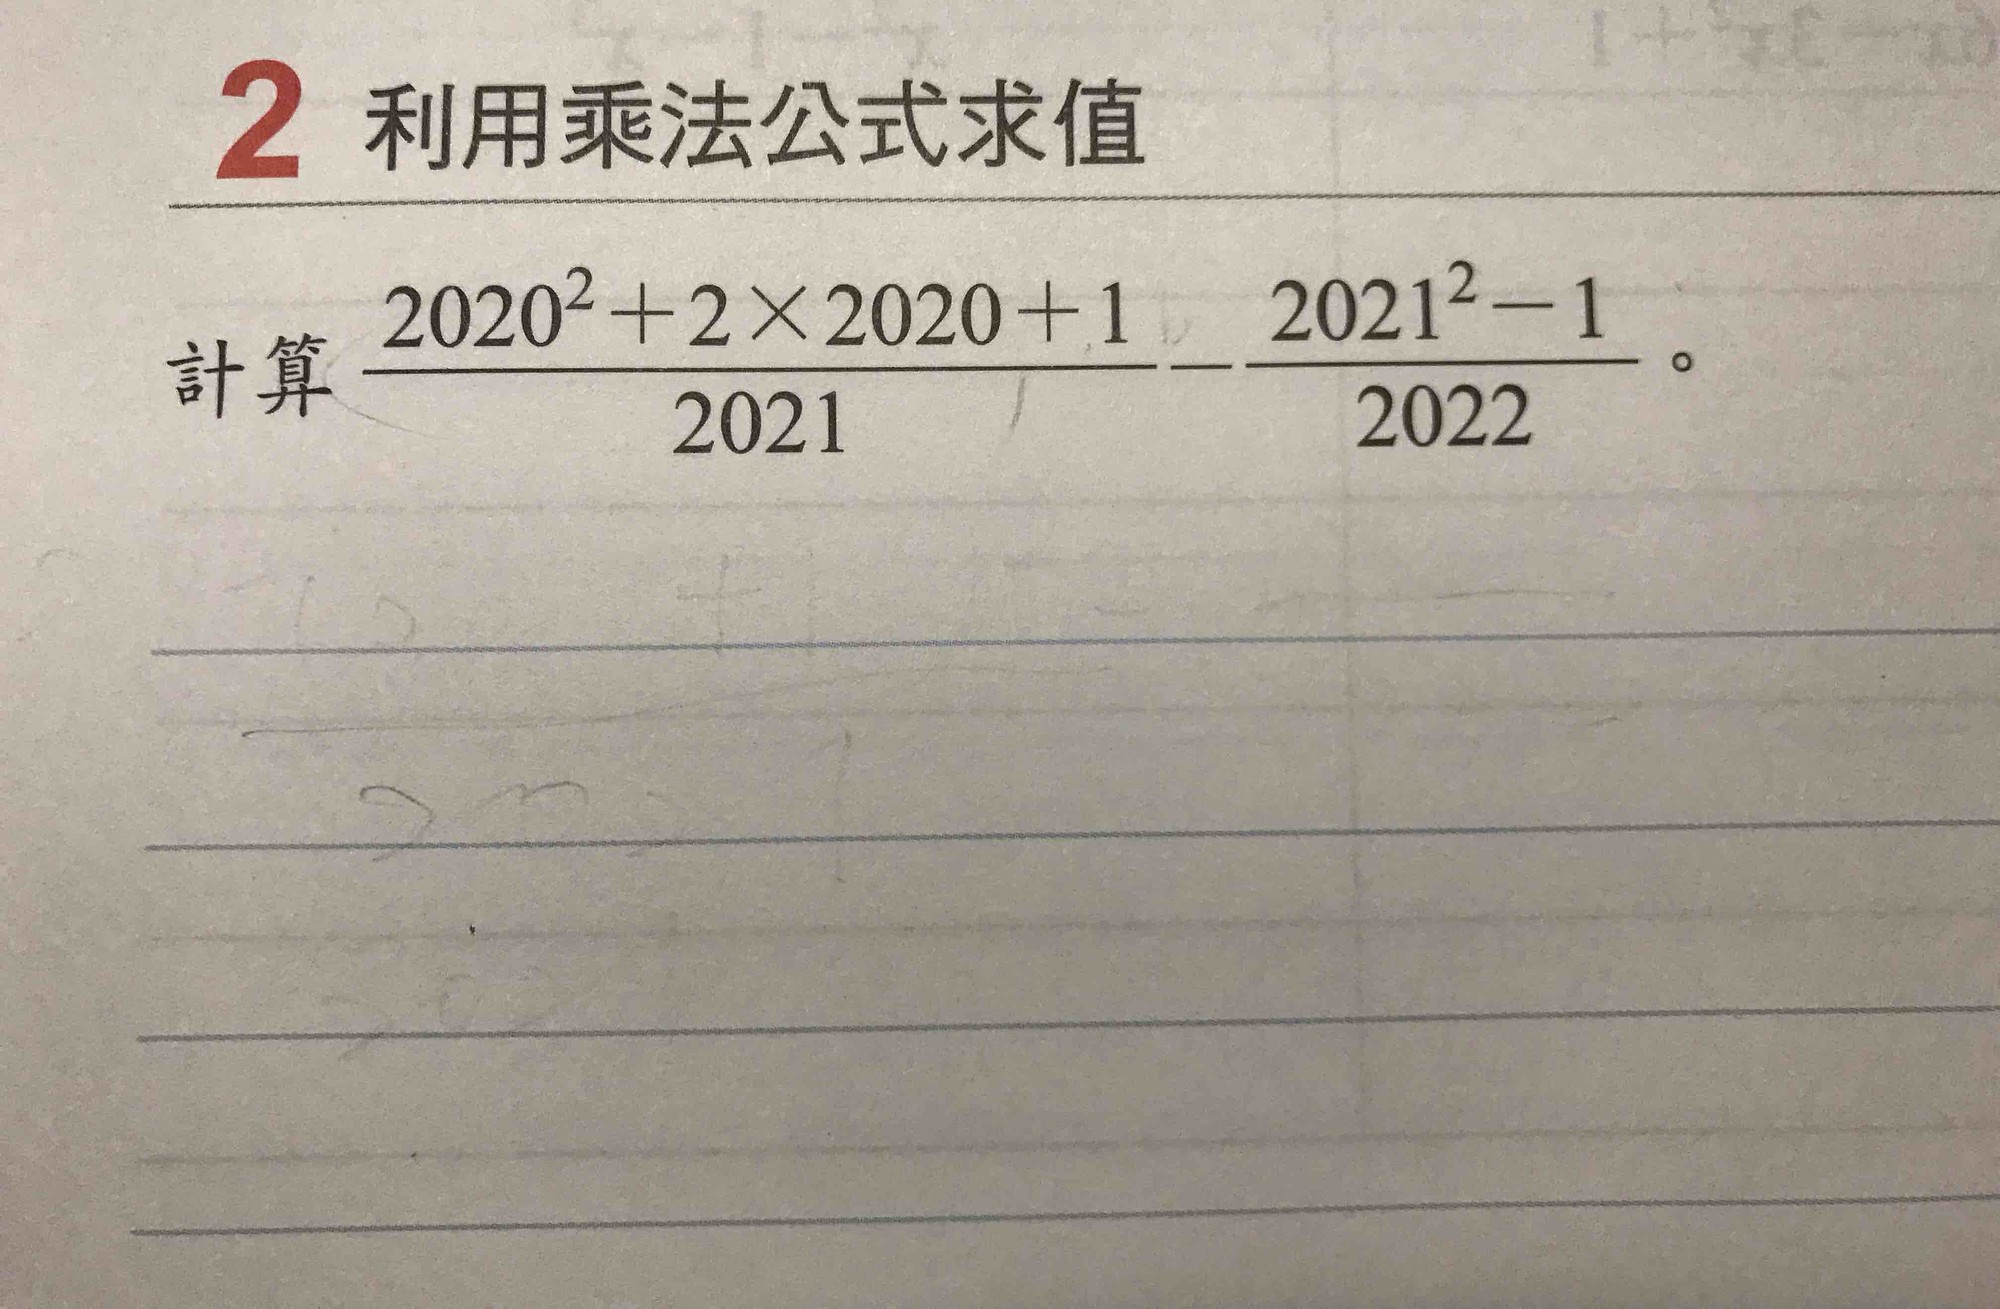 2 利用乘法公式求值
計算 \frac{2020²+2×2020+1}{2021} - \frac{2021²-1}{2022}。